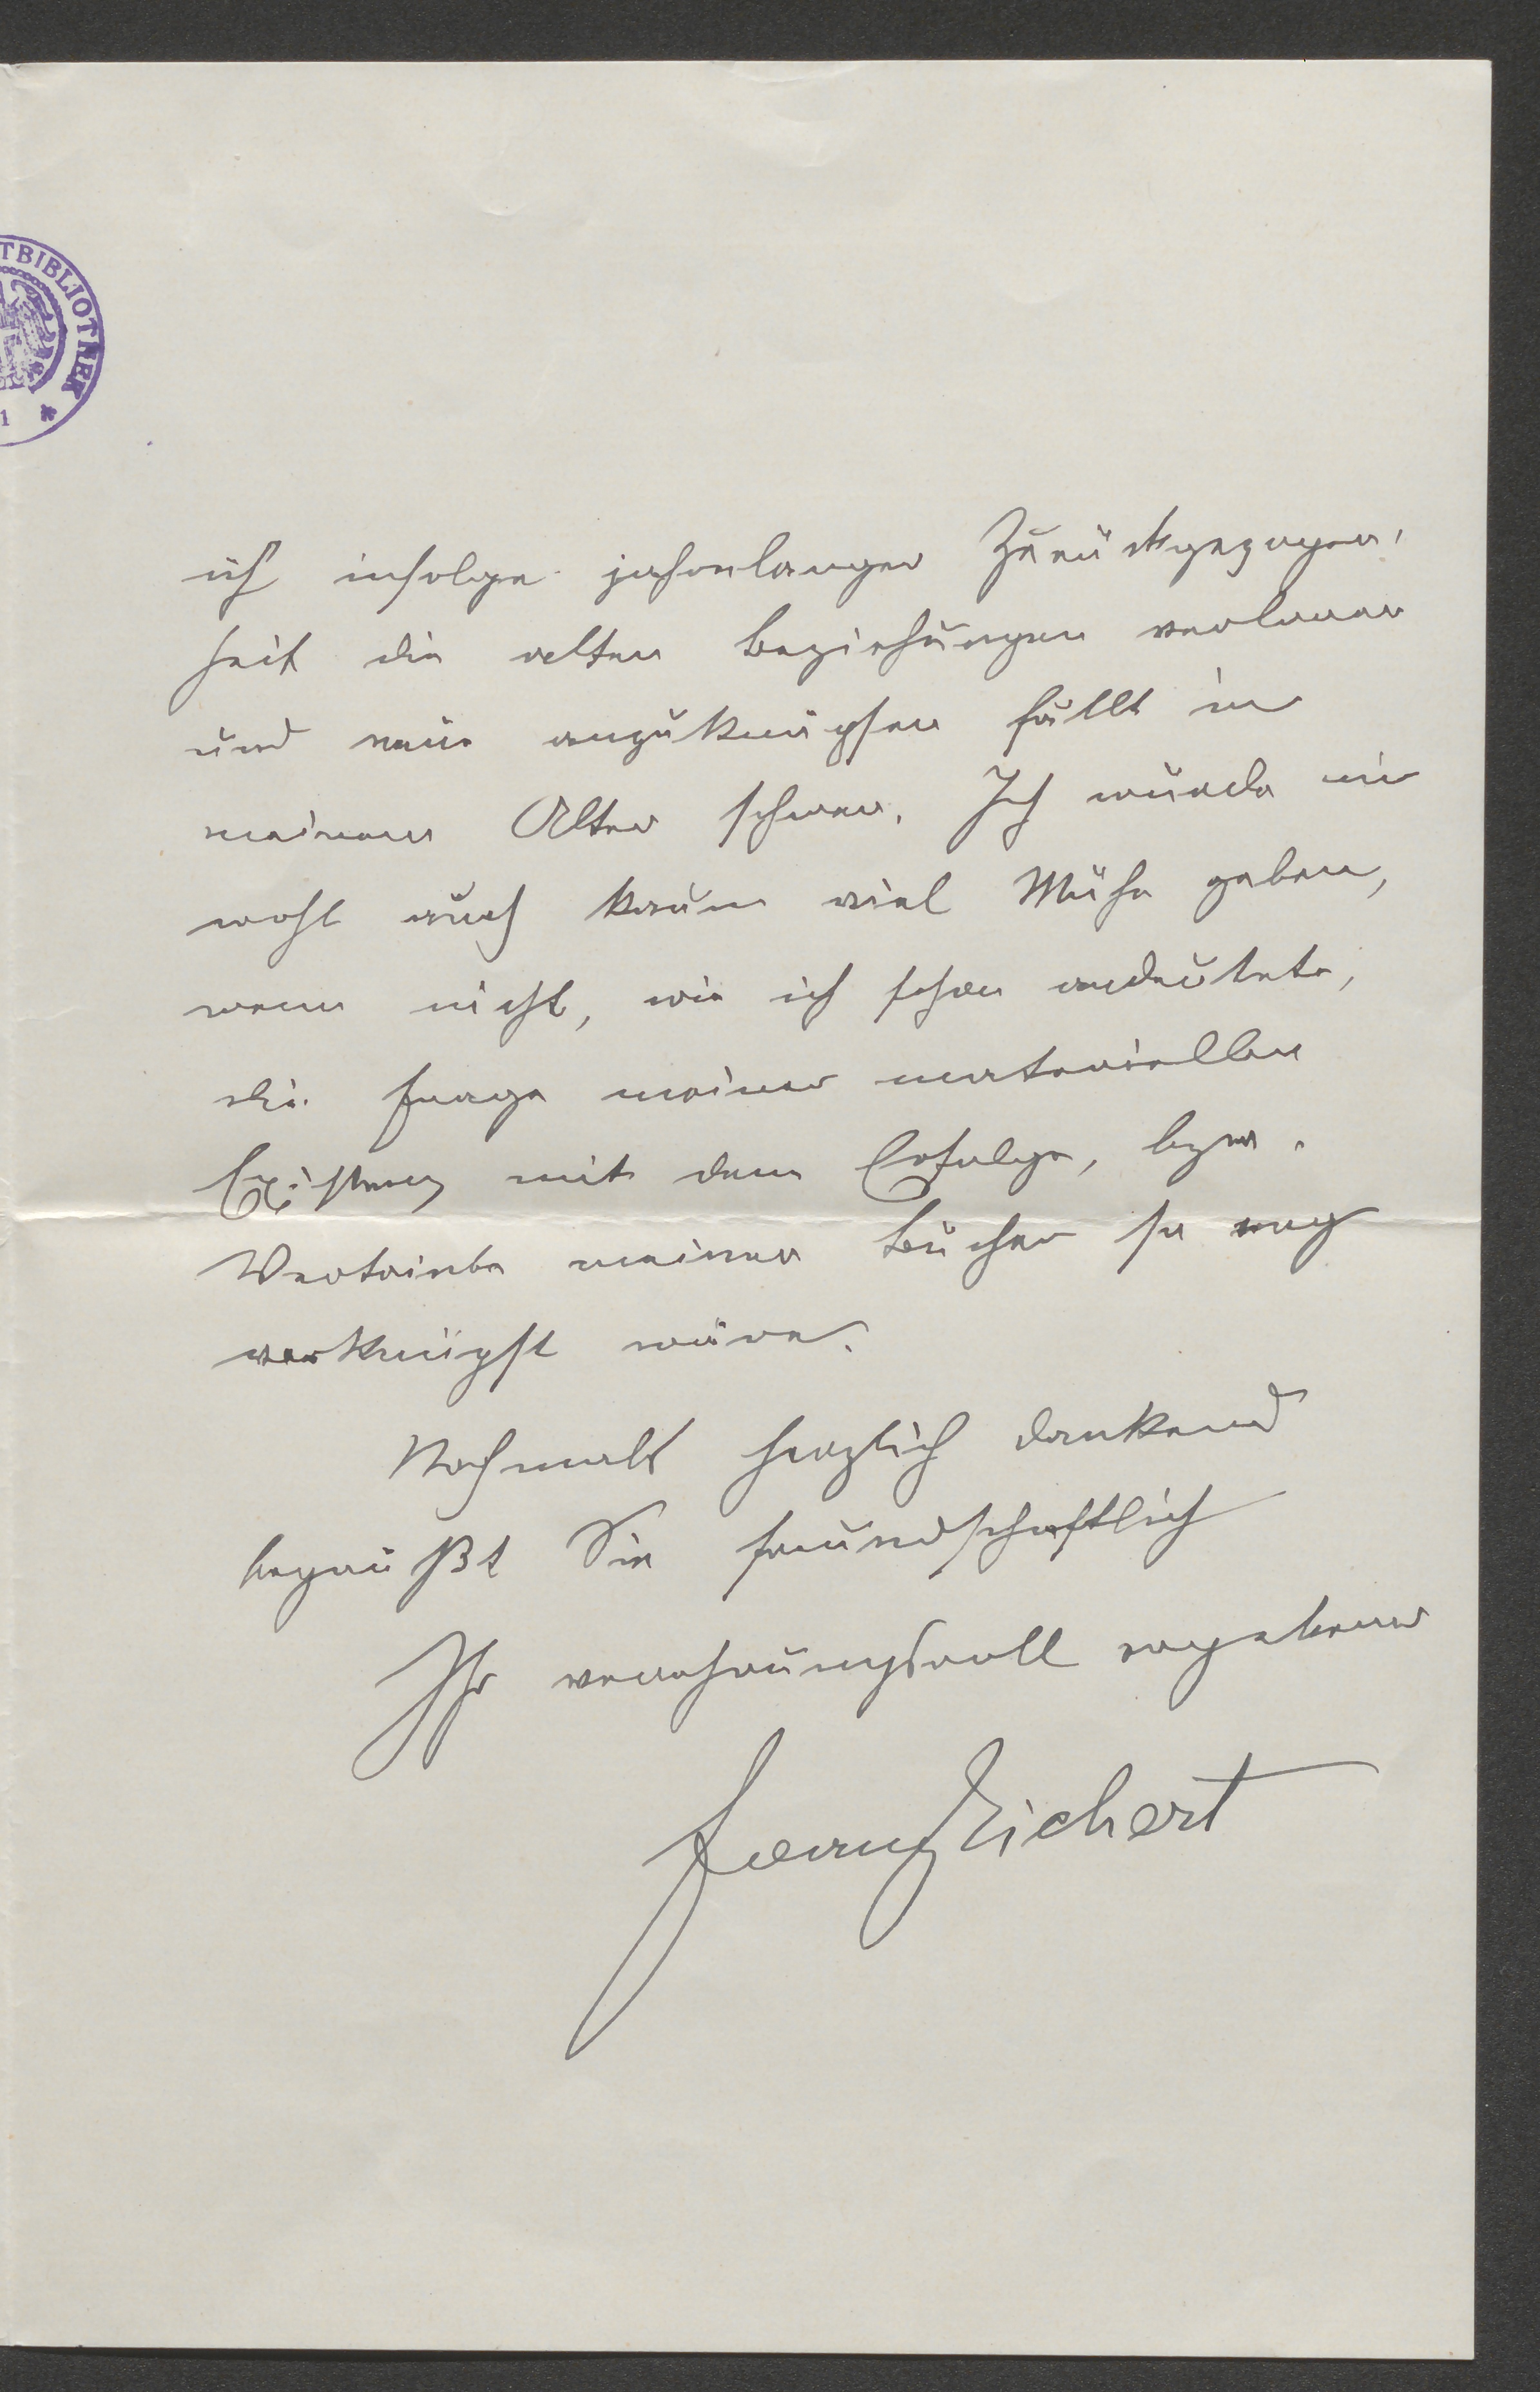 TBIBLIOTHEK
1 *
ich infolge jahrelanger Zurückgezogen-
heit die alten Beziehungen verloren
und neue anzuknüpfen fällt in
meinem Alter schwer. Ich würde mir
wohl auch kaum viel Mühe geben,
wenn nicht, wie ich schon andeutete,
die Frage meiner materiellen
Existenz mit dem Erfolge, bzw.
Vertriebe meiner Bücher so eng
verknüpft wäre.
Nochmals herzlich dankend
begrüßt Sie freundschaftlich
Ihr verehrungsvoll ergebener
Franz Eichert